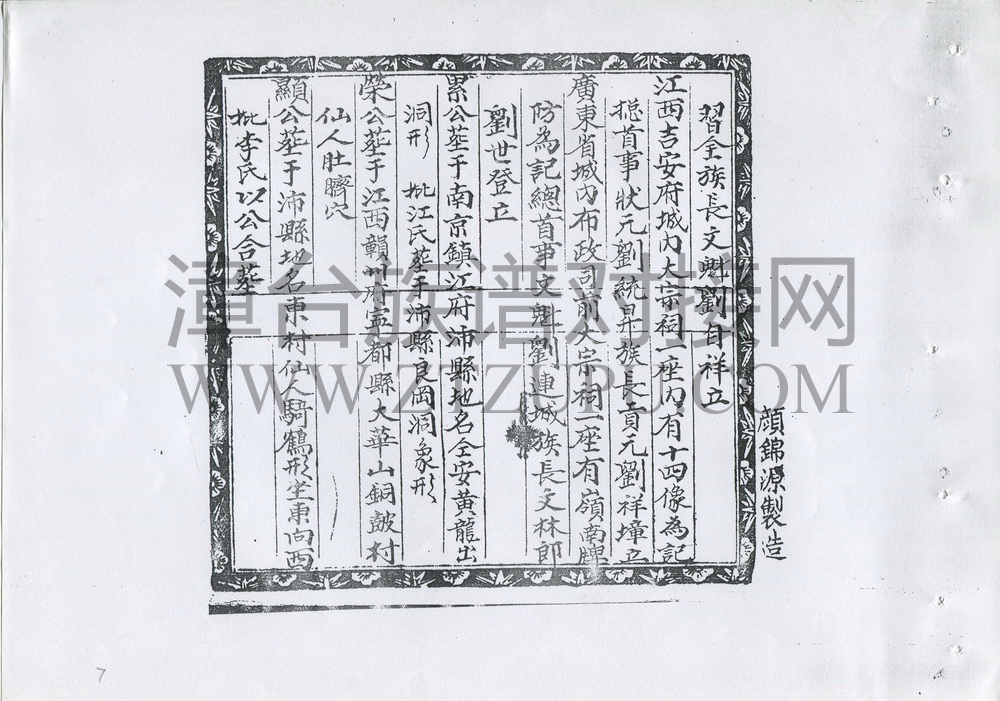 習全族長文魁劉自祥立
江西吉安府城內大宗祠一座內有十四像為記
揔首事狀元劉統昇族長貢元劉祥墇立
廣東省城內布政司前大宗祠一座有嶺南牌
防為記總首事文魁劉連城族長文林郎
劉世登立
累公塟于南京鎮江府沛縣地名全安黃龍出
洞形 妣江氏塟于沛縣良岡洞象形
榮公塟于江西贑州府寧都縣大華山銅皷村
仙人肚臍穴
顯公塟于沛縣地名東村仙人騎鶴形坐東向西
妣李氏以公合塟
顔錦源製造
漳台族谱对接网
WWW.ZTZUPU.COM
7